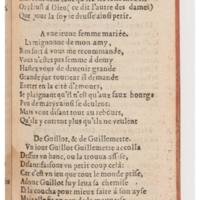 Que jour la foy ie deusse ainsi perir.
A vne ieune femme mariée.
La mignonne de mon amy,
Bien fort à vous me recommande,
Vous n'estes pas femme à demy
Hastez vous de deuenir grande
Grande par tout car il demande
Entrer en la cité d'amours,
Se plaignant qu'il n'est qu'aux faux bourgs
Peu de marys ainsi se deulent:
Mais vont disant tout au rebours,
Qu'ils y entrent plus qu'ils ne veulent
De Guillot, & de Guillemette.
Vn iour Guillot Guillemette accolla
Dessus vn banc, ou la trouua assise,
Disant faisons vn petit coup cela
Car c'est vn ieu que tout le monde prise,
Adonc Guillot luy leua sa chemise
Et la coucha pour mieux faire à son ayse